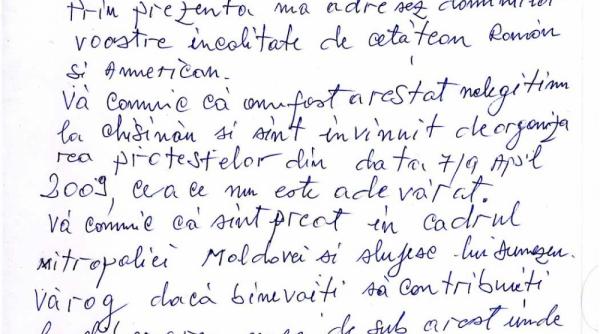 Prin prezenta mă adresez domniilor
voastre in calitate de cetățean Român
și American.
Vă comunic că am fost arestat nelegitim
la Chisinău și sint învinuit de organiza
rea protestelor din data 7/9 April
2009, ceea ce nu este adevărat.
Vă comunic că sint preot în cadrul
mitropoliei Moldovei și slujesc lui Dumnezeu.
Vă rog dacă binevoiti să contribuiti
de sub arest unde